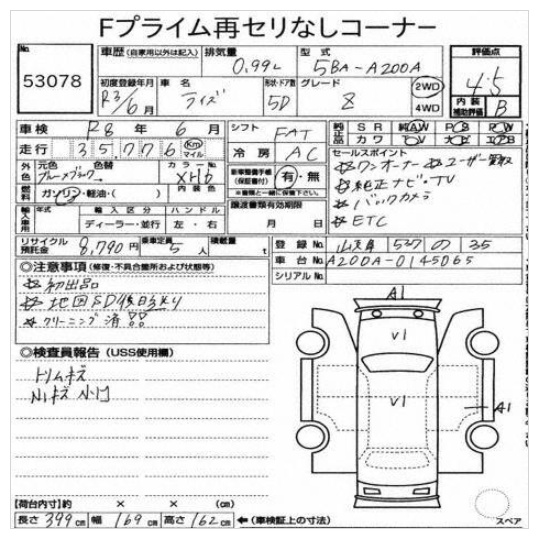 Fプライム再セリなしコーナー
No. 53078
車歴 (自家用以外は記入) 排気量 0.99L 型式 5BA-A200A 評価点 4.5
初度登録年月 R3/6月 車名 ライズ 形状・ドア数 5D グレード Z 2WD 4WD 内装補助評価 B
車検 R8年 6月 シフト FAT 純正品 SR 純AW PS PW カワ ナビ TV エアB
走行 35,776 Km マイル 冷房 AC セールスポイント
外色 元色 ブルーブラック 色替 カラーNo. X10 新車整備手帳(保証書付) 有・無 ☆ワンオーナー ☆ユーザー買取
燃料 ガソリン・軽油・( ) 内装色 ※書類と一緒に保管下さい。 ☆純正ナビ・TV
輸入車用 年式 輸入区分 ハンドル 譲渡書類有効期限 ☆バックカメラ
ディーラー・並行 左・右 月 日 ☆ETC
リサイクル預託金 8,790円 乗車定員 5人 積載量 t 登録No. 537 の 35
車台No. A200A-0145065
◎注意事項 (修復・不具合箇所および状態等) シリアルNo.
☆初出品
☆地図SD後日あり
☆クリーニング済!!
A1
V1
◎検査員報告 (USS使用欄)
トリムキズ
V1
A1
【荷台内寸】約 × × (cm)
長さ 399cm 幅 169cm 高さ 162cm ←(車検証上の寸法) スペア